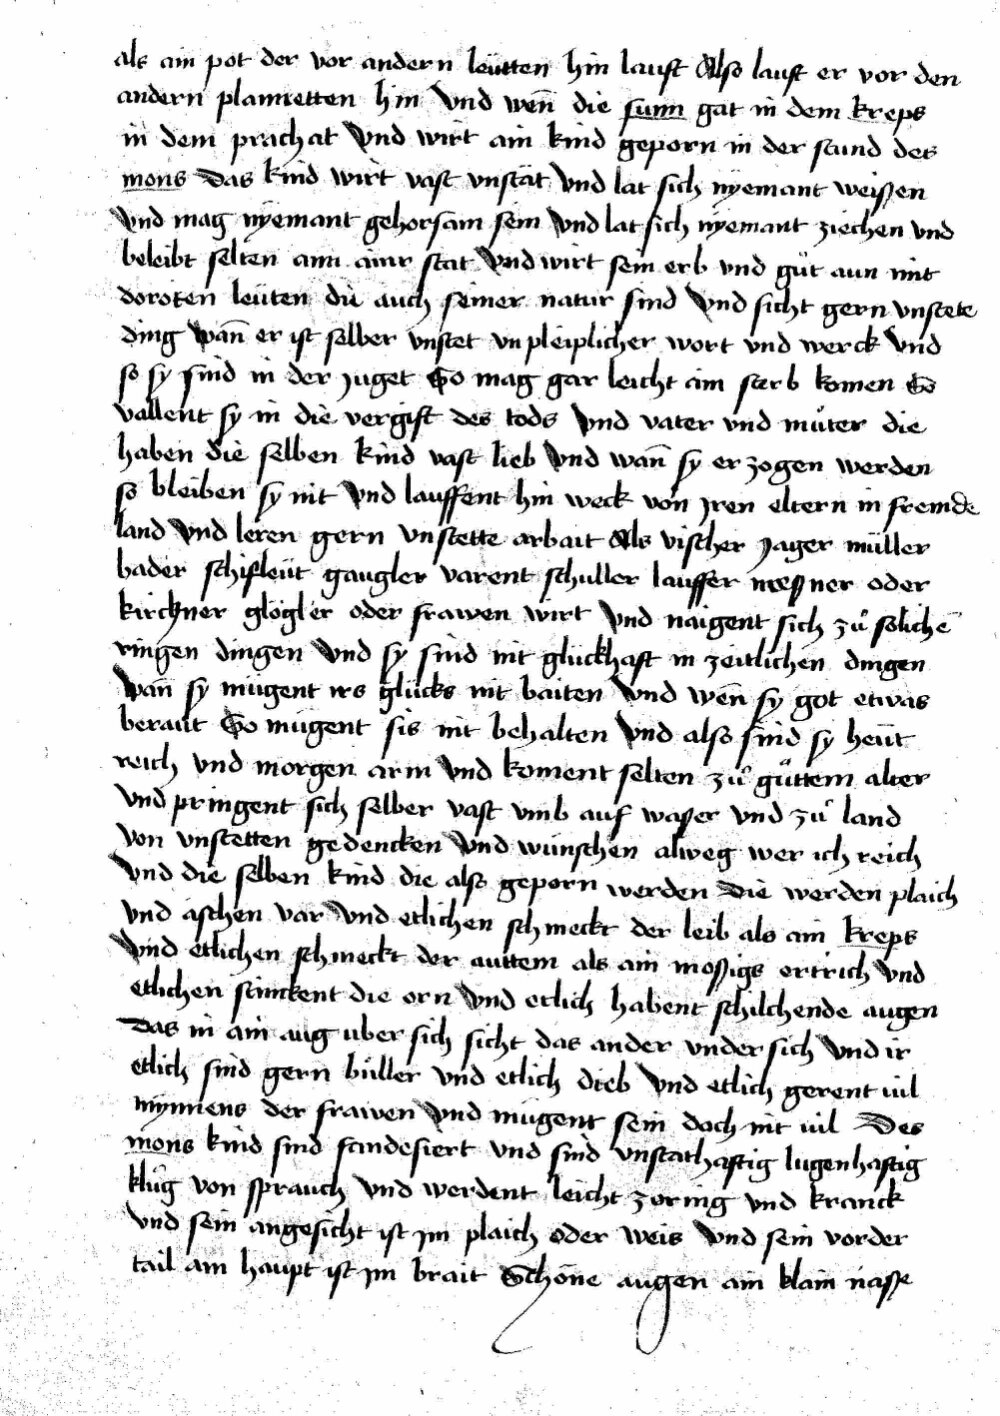 als ain pot der vor andern leütten hin lauft Also lauft er vor den
andern plannetten hin Vnd wen̄ die sunn gat in dem kreps
in dem prachat Vnd wirt ain kind geporn in der stund des
mons Das kind wirt vast vnstät Vnd lat sich nyemant weißen
Vnd mag nyemant gehorsam sein Vnd lat sich nyemant ziechen vnd
beleibt selten ann ainr stat Vnd wirt sein erb vnd gůt aun mit
doroten leüten dü auch seiner natur sind Vnd sicht gern vnstete
ding Wan̄ er ist selber vnstet vnpleiplicher wort vnd werck Vnd
so sy sind in der juget So mag gar leicht ain sterb komen So
vallent sy in die vergift des tods Vnd vater vnd můter die
haben die selben kind vast lieb Vnd wan̄ sy erzogen werden
so bleiben sy nit Vnd lauffent hin weck von jren eltern in fremde
land Vnd leren gern vnstette arbait Als vischer Jager müller
bader schifleüt gaugler varent schuller lauffer meßner oder
kirchner glögler oder frawen wirt Vnd naigent sich zů soliche͞
ringen dingen Vnd sy sind nit glückhaft in zeitlichen dingen
Wan̄ sy mügent irs glücks nit baiten Vnd wen̄ sy got etwas
beraut So mügent sis nit behalten Vnd also sind sy heüt
reich Vnd morgen arm Vnd koment selten zů gůttem alter
Vnd pringent sich selber vast vmb auf waßer Vnd zů land
von vnstetten gedencken Vnd wünschen alweg wer ich reich
Vnd die selben kind die also geporn werden Die werden plaich
Vnd aschen var Vnd etlichen schmeckt der leib als ain kreps
Vnd etlichen schmeckt der auttem als ain moßigs ertrich Vnd
etlichen stinckent die orn Vnd etlich habent schilchende augen
Das in ain aug uber sich sicht das ander vnder sich Vnd ir
etlich sind gern bůller Vnd etlich dieb Vnd etlich gerent uil
mynnens der frawen Vnd mügent sein doch nit uil Des
mons kind sind vnd sind vnstathaftig lugenhaftig
klůg von sprauch Vnd werdent leicht zornig Vnd kranck
Vnd sein angesicht ist jm plaich oder weis Vnd sein vorder
tail am haupt ist jm brait Schöne augen ain klain naße